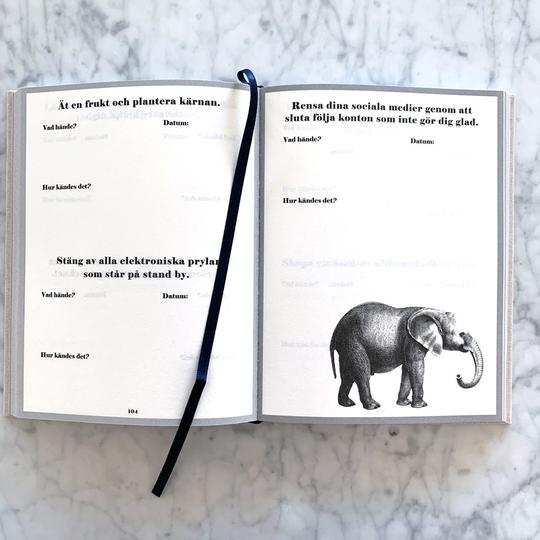 Ät en frukt och plantera kärnan.
Vad hände? Datum:
Hur kändes det?
Stäng av alla elektroniska prylar
som står på stand by.
Vad hände? Datum:
Hur kändes det?
104
Rensa dina sociala medier genom att
sluta följa konton som inte gör dig glad.
Vad hände? Datum:
Hur kändes det?